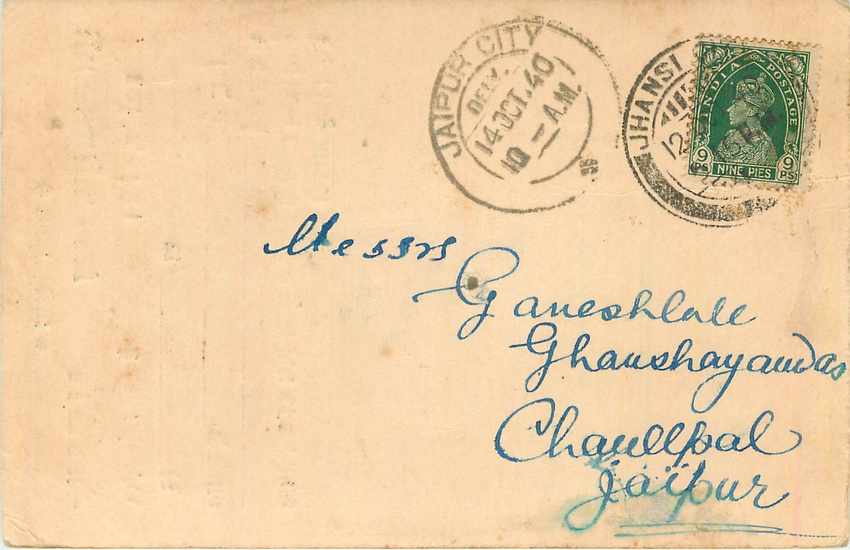 JAIPUR CITY
14 OCT. 40
10 - A.M.
JHANSI
12
INDIA POSTAGE
9 PS
NINE PIES
9 PS
Messrs
Ganeshlall
Ghanshayamdas
Jaipur